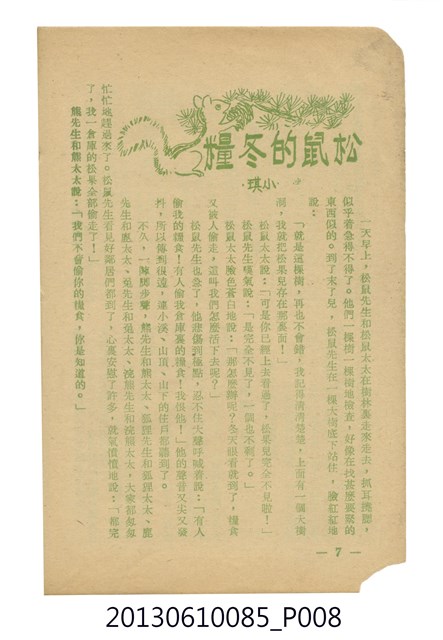 松鼠的冬糧
小琪·
一天早上，松鼠先生和松鼠太太在樹林裏走來走去，抓耳撓腮，
似乎着急得不得了。他們一棵樹一棵樹地檢查，好像在找甚麼要緊的
東西似的。到了末了兒，松鼠先生在一棵大樹底下站住，臉紅紅地
說：
「就是這棵樹，再也不會錯，我記得清清楚楚，上面有一個大樹
洞，我就把松果兒存在那裏面！」
松鼠太太說：「可是你已經上去看過了，松果兒完全不見啦！」
松鼠先生嘆氣說：「是完全不見了，一個也不剩了。」
松鼠太太臉色蒼白地說：「那怎麼辦呢？冬天眼看就到了，糧食
又被人偷走，這叫我們怎麼活下去呢？」
松鼠先生也急了，他悲傷到極點，忍不住大聲呼喊着說：「有人
偷我的糧食！有人偷我倉庫裏的糧食！我恨他！」他的聲音又尖又發
抖，所以傳到很遠，連小溪、山頂、山下的住戶都聽到了。
不久，一陣脚步聲，熊先生和熊太太、狐狸先生和狐狸太太、鹿
先生和鹿太太、兔先生和兔太太、浣熊先生和浣熊太太，大家都匆匆
忙忙地趕過來了。松鼠先生看見好鄰居們都到了，心裏安慰了許多，就氣憤憤地說：「都完
了，我一倉庫的松果全部偷走了！」
熊先生和熊太太說：「我們不會偷你的糧食，你是知道的。」
— 7 —
20130610085_P008